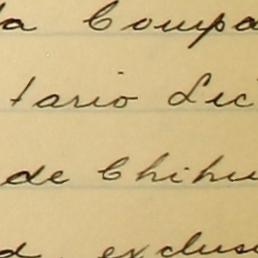 la Compa
tario Lic
de Chihu
d exclus